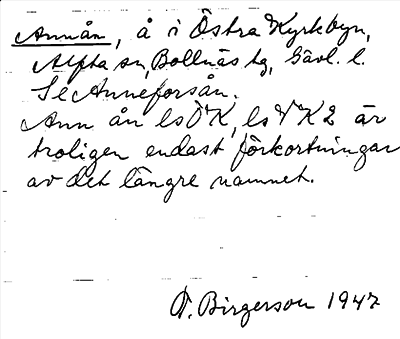 Annån, å i Östra Kyrkbyn,
Alfta sn, Bollnäs tg, Gävl. l.
Se Anneforsån.
Ann ån ls ÖK, ls VK2 är
troligen endast förkortningar
av det längre namnet.
Birgerson 1947